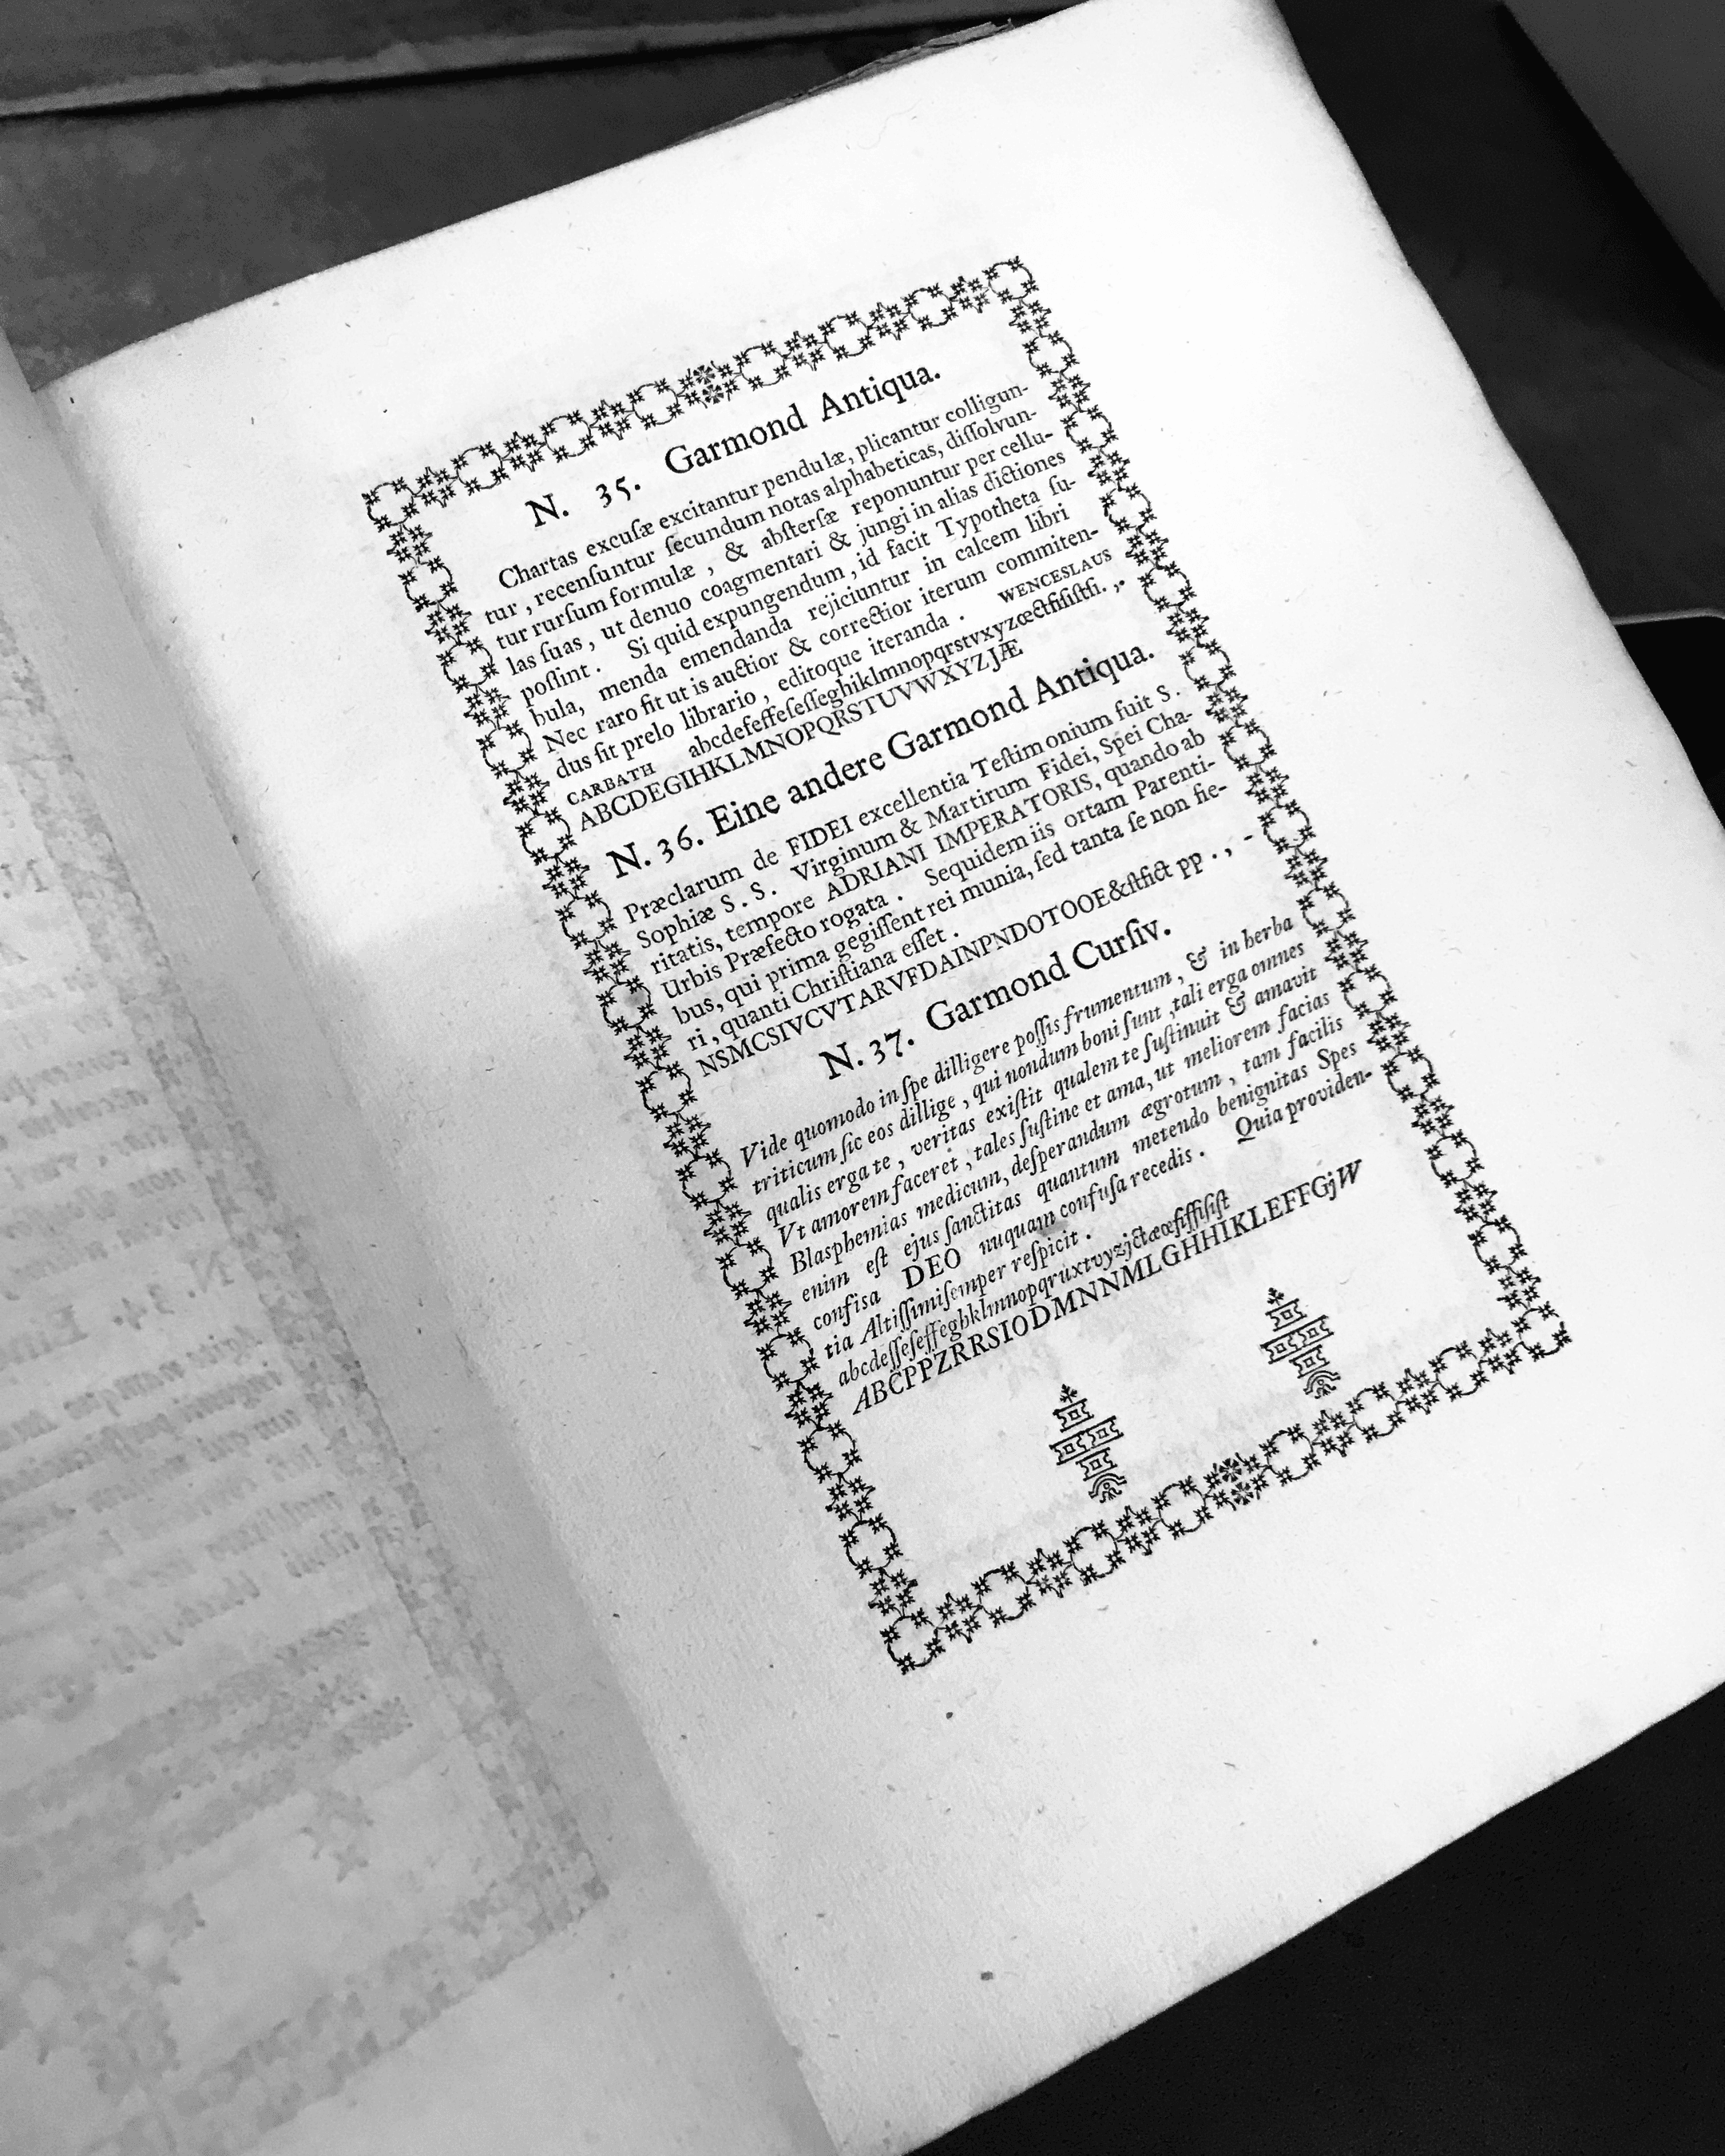 N. 35. Garmond Antiqua.
Chartas excuſæ excitantur pendulæ, plicantur colligun-
tur, recenſuntur ſecundum notas alphabeticas, diſſolvun-
tur rurſum formulæ, & abſterſæ reponuntur per cellu-
las ſuas, ut denuo coagmentari & jungi in alias dictiones
poſſint. Si quid expungendum, id facit Typotheta ſu-
bula, menda emendanda rejiciuntur in calcem libri
Nec raro fit ut is auctior & correctior iterum commiten-
dus fit prelo librario, editoque iteranda. WENCESLAUS
CARBATH
ABCDEGIHKLMNOPQRSTUVWXYZJÆ
N. 36. Eine andere Garmond Antiqua.
Præclarum de FIDEI excellentia Teſtimonium fuit S.
Sophiæ S. S. Virginum & Martirum Fidei, Spei Cha-
ritatis, tempore ADRIANI IMPERATORIS, quando ab
Urbis Præfecto rogata. Sequidem iis ortam Parenti-
bus, qui prima gegiſſent rei munia, ſed tanta ſe non fie-
ri, quanti Chriſtiana eſſet.
NSMCSIVCVTARVFDAINPNDOTOOE&ſtfict pp . , -
N. 37. Garmond Curſiv.
Vide quomodo in ſpe dilligere poſſis frumentum, & in herba
triticum ſic eos dillige, qui nondum boni ſunt, tali erga omnes
qualis erga te, veritas exiſtit qualem te ſuſtinuit & amavit
Vt amorem faceret, tales ſuſtine et ama, ut meliorem facias
Blasphemias medicum, deſperandum ægrotum, tam facilis
enim eſt ejus ſanctitas quantum metendo benignitas Spes
confisa DEO nuquam confuſa recedis. Quia providen-
tia Altiſſimi ſemper reſpicit.
ABCPPZRRSIODMNNMLGHHIKLEFFGjW